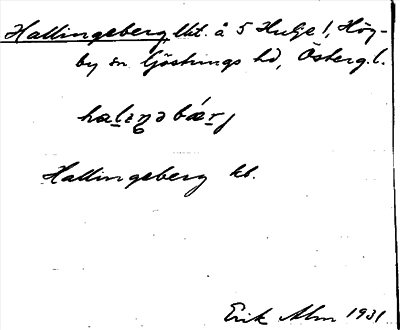 Hallingeberg, lht. å 5 Hulje 1, Hög-
by sn Göstrings hd, Österg. l.
halıŋəbærj
Hallingeberg kb.
Erik Alm 1931